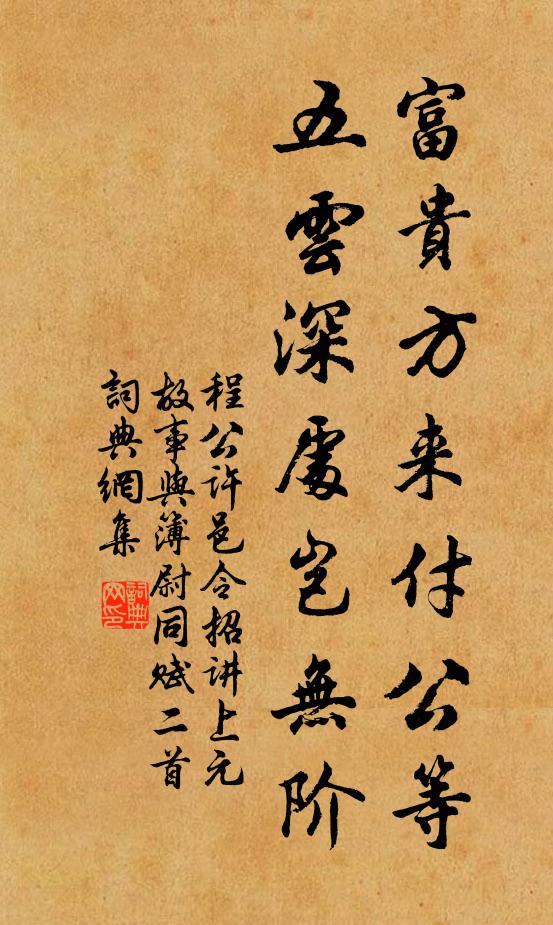 富貴方来付公等
五雲深處岂無阶
程公许邑令招讲上元
故事與簿尉同赋二首
詞典網集
詞典
网印